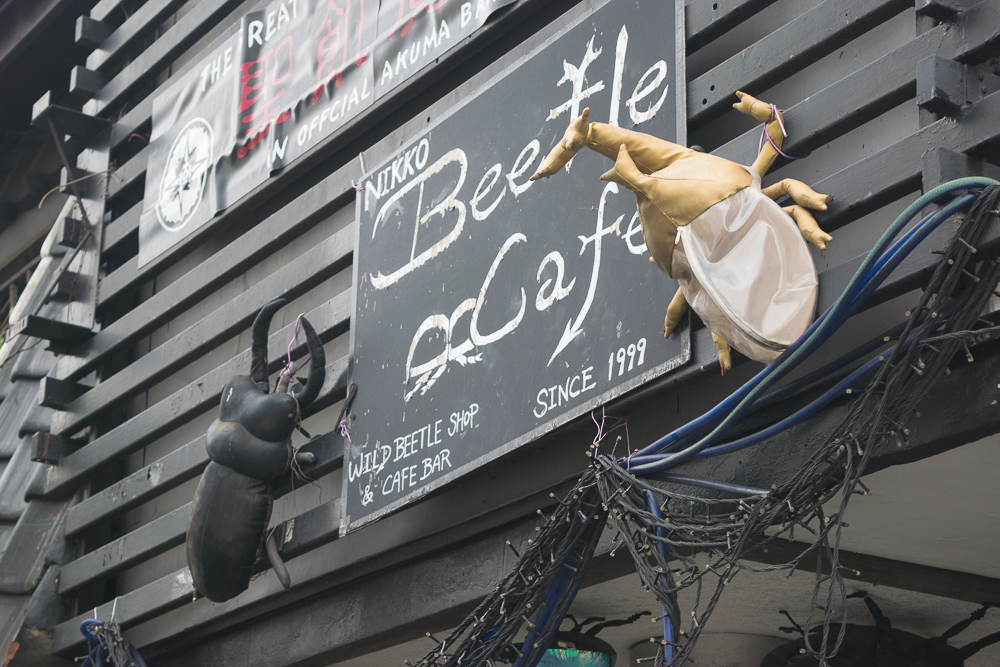 THE REAT
AN OFFCIAL AKUMA BA
NIKKO
Beetle
Cafe
SINCE 1999
WILD BEETLE SHOP
& CAFE BAR